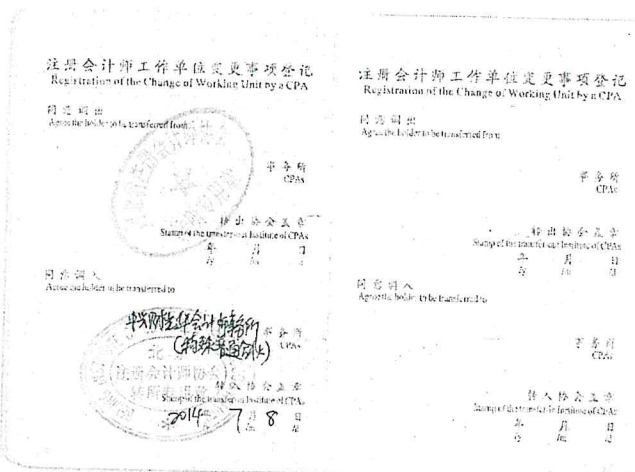 注册会计师工作单位变更事项登记
Registration of the Change of Working Unit by a CPA
同意调出
Agree the holder to be transferred from
事务所
CPAs
转出协会盖章
Stamp of the transfer-out Institute of CPAs
年 月 日
同意调入
Agree the holder to be transferred to
中兴财光华会计师事务所
(特殊普通合伙)
事务所
CPAs
北京
注册会计师协会
转所专用章
转入协会盖章
Stamp of the transfer-in Institute of CPAs
2014 7月8日
注册会计师工作单位变更事项登记
Registration of the Change of Working Unit by a CPA
同意调出
Agree the holder to be transferred from
事务所
CPAs
转出协会盖章
Stamp of the transfer-out Institute of CPAs
年 月 日
同意调入
Agree the holder to be transferred to
事务所
CPAs
转入协会盖章
Stamp of the transfer-in Institute of CPAs
年 月 日